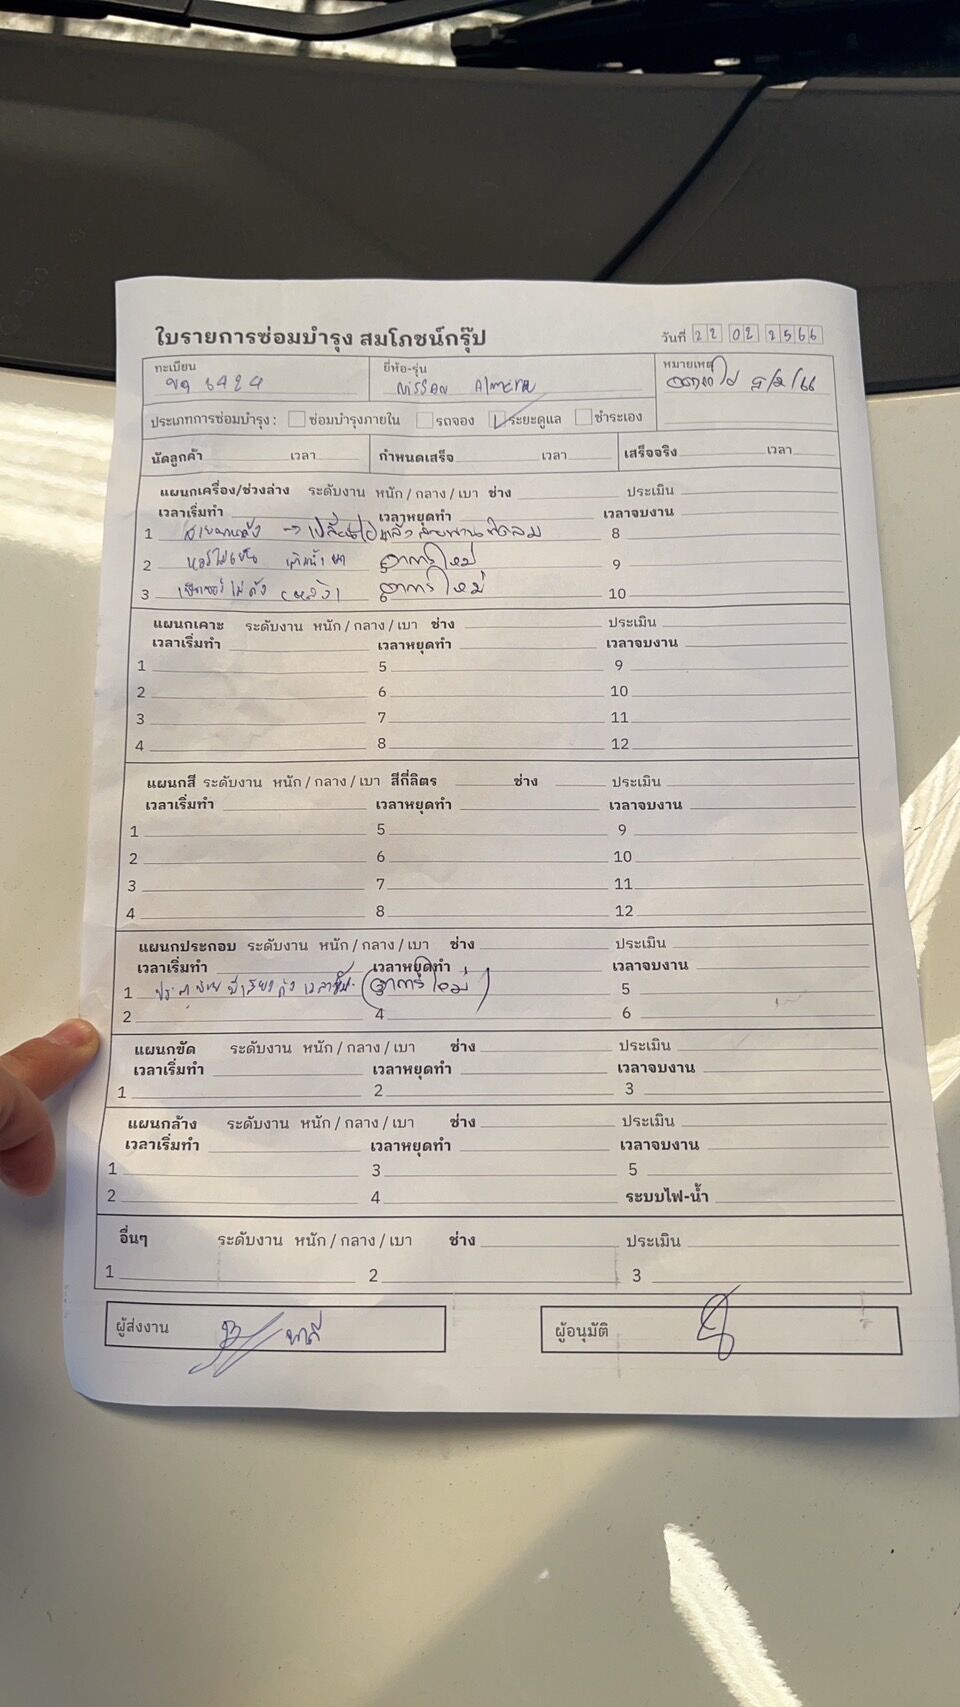 ใบรายการซ่อมบำรุง สมโภชน์กรุ๊ป วันที่ 22 02 2566
ทะเบียน ยี่ห้อ-รุ่น หมายเหตุ
6424 Nissan Almera 9/2/66
ประเภทการซ่อมบำรุง : ซ่อมบำรุงภายใน รถจอง ระยะดูแล ชำระเอง
นัดลูกค้า เวลา กำหนดเสร็จ เวลา เสร็จจริง เวลา
แผนกเครื่อง/ช่วงล่าง ระดับงาน หนัก / กลาง / เบา ช่าง ประเมิน
เวลาเริ่มทำ เวลาหยุดทำ เวลาจบงาน
1 สายพานดัง → เปลี่ยน สายพาน 8
2 แอร์ไม่เย็น เติมน้ำยา ดูอาการใหม่ 9
3 ไม่ดัง ดูอาการใหม่ 10
แผนกเคาะ ระดับงาน หนัก / กลาง / เบา ช่าง ประเมิน
เวลาเริ่มทำ เวลาหยุดทำ เวลาจบงาน
1 5 9
2 6 10
3 7 11
4 8 12
แผนกสี ระดับงาน หนัก / กลาง / เบา สีกี่ลิตร ช่าง ประเมิน
เวลาเริ่มทำ เวลาหยุดทำ เวลาจบงาน
1 5 9
2 6 10
3 7 11
4 8 12
แผนกประกอบ ระดับงาน หนัก / กลาง / เบา ช่าง ประเมิน
เวลาเริ่มทำ เวลาหยุดทำ เวลาจบงาน
1 มีเสียงดัง (ดูอาการใหม่) 5
2 4 6
แผนกขัด ระดับงาน หนัก / กลาง / เบา ช่าง ประเมิน
เวลาเริ่มทำ เวลาหยุดทำ เวลาจบงาน
1 2 3
แผนกล้าง ระดับงาน หนัก / กลาง / เบา ช่าง ประเมิน
เวลาเริ่มทำ เวลาหยุดทำ เวลาจบงาน
1 3 5
2 4 ระบบไฟ-น้ำ
อื่นๆ ระดับงาน หนัก / กลาง / เบา ช่าง ประเมิน
1 2 3
ผู้ส่งงาน ผู้อนุมัติ